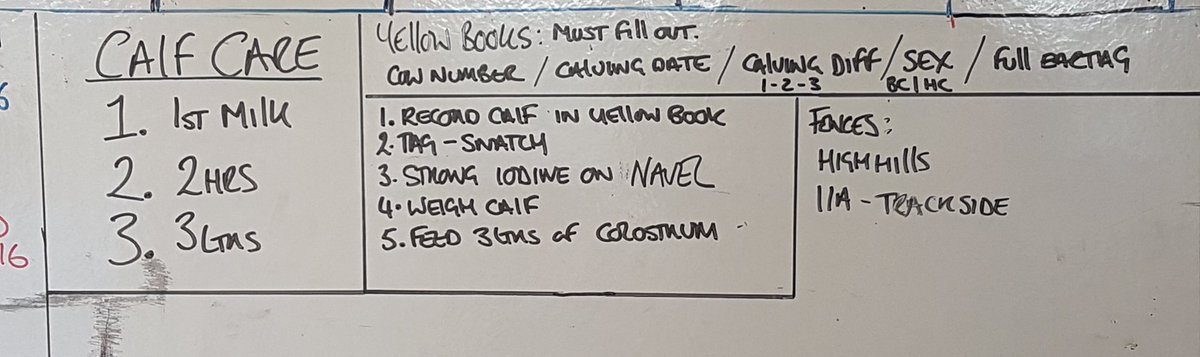 CALF CARE
1. 1ST MILK
2. 2HRS
3. 3LTRS
YELLOW BOOKS: MUST FILL OUT.
COW NUMBER / CALVING DATE / CALVING DIFF / SEX / FULL EARTAG
1-2-3 BC/HC
1. RECORD CALF IN YELLOW BOOK
2. TAG - SNATCH
3. STRONG IODINE ON NAVEL
4. WEIGH CALF
5. FEED 3LTRS OF COLOSTRUM
FENCES:
HIGH HILLS
11A - TRACKSIDE
6
16